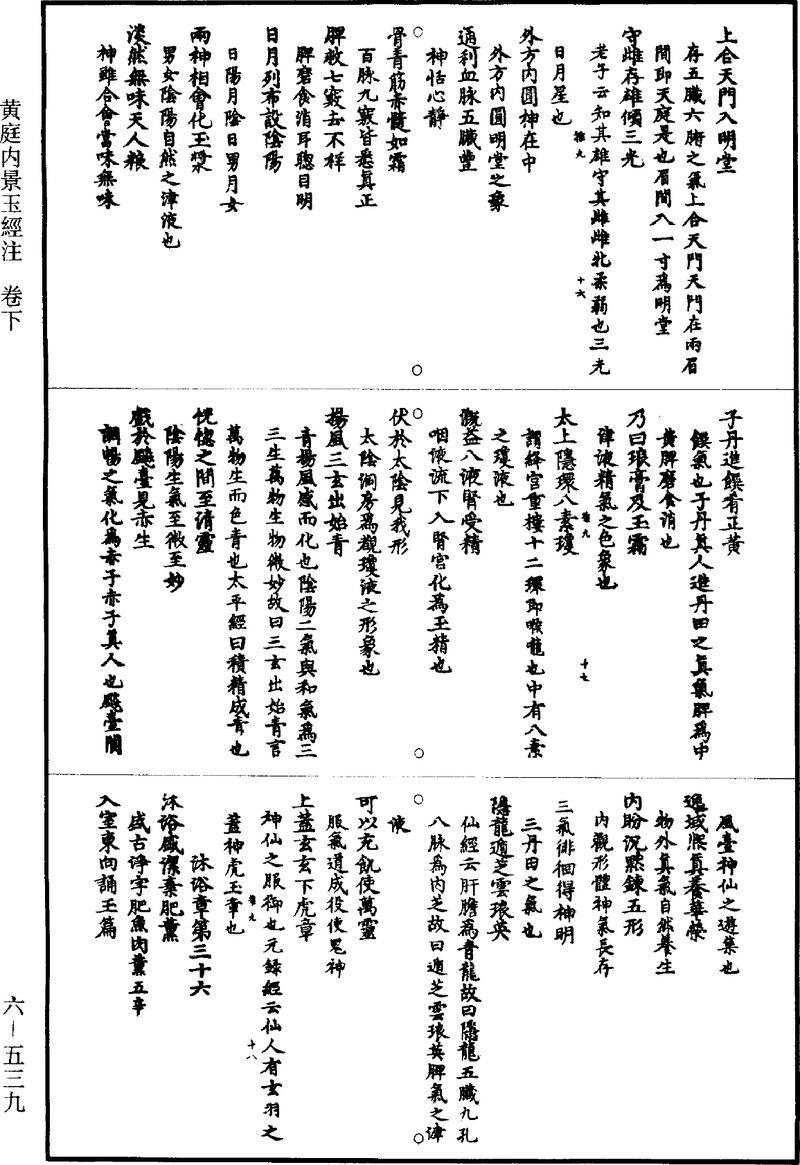 黄庭内景玉經注　卷下
六－五三九
上合天門入明堂
存五臟六腑之氣上合天門天門在兩眉
間即天庭是也眉間入一寸爲明堂
守雌存雄傾三光
老子云知其雄守其雌雌牝柔弱也三光
推九　十六
日月星也
外方内圓神在中
外方内圓明堂之象
通利血脉五臟豐
神恬心靜
骨青筋赤髓如霜
百脉九竅皆悉真正
脾救七竅去不祥
脾磨食消耳聰目明
日月列布設陰陽
日陽月陰日男月女
兩神相會化玉漿
男女陰陽自然之津液也
淡然無味天人糧
神雖合會當味無味
子丹進饌肴正黄
饌氣也子丹真人進丹田之真氣脾爲中
黄脾磨食消也
乃曰琅膏及玉霜
津液精氣之色象也
推九　十七
太上隱環八素瓊
謂絳宫重樓十二環即喉嚨也中有八素
之瓊液也
溉益八液腎受精
咽液流下入腎宫化爲玉精也
伏於太陰見我形
太陰洞房爲覩瓊液之形象也
揚風三玄出始青
青揚風感而化也陰陽二氣與和氣爲三
三生萬物生物微妙故曰三玄出始青言
萬物生而色青也太平經曰積精成青也
恍惚之間至清靈
陰陽生氣至微至妙
戲於飈臺見赤生
調暢之氣化爲赤子赤子真人也飈臺閬
風臺神仙之遊集也
逸域熙真養華榮
物外真氣自然養生
内盼沉默鍊五形
内觀形體神氣長存
三氣徘徊得神明
三丹田之氣也
隱龍遁芝雲琅英
仙經云肝膽爲青龍故曰隱龍五臟九孔
八脉爲内芝故曰遁芝雲琅英脾氣之津
液
可以充飢使萬靈
服氣道成役使鬼神
上蓋玄玄下虎章
神仙之服御也元録經云仙人有玄羽之
推九　十八
蓋神虎玉章也
沐浴章第三十六
沐浴盛潔棄肥薰
盛古淨字肥魚肉薰五辛
入室東向誦玉篇